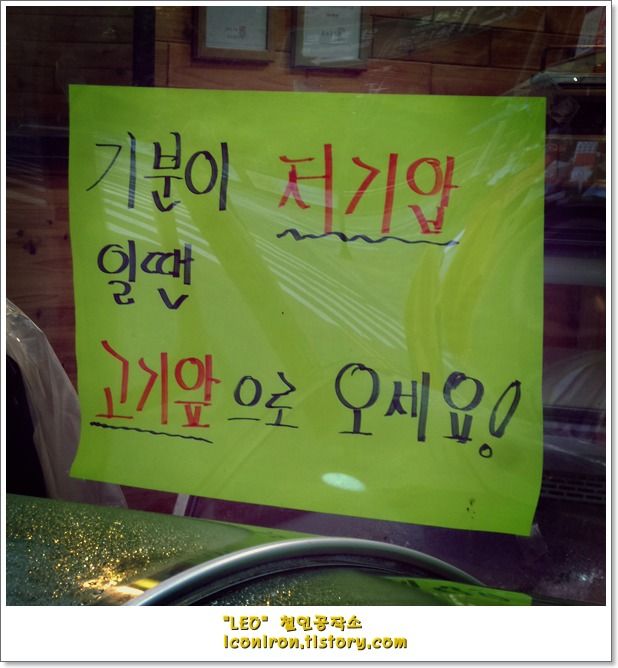 기분이 저기압
일땐
고기앞으로 오세요!
"LEO" 철인공작소
iconiron.tistory.com